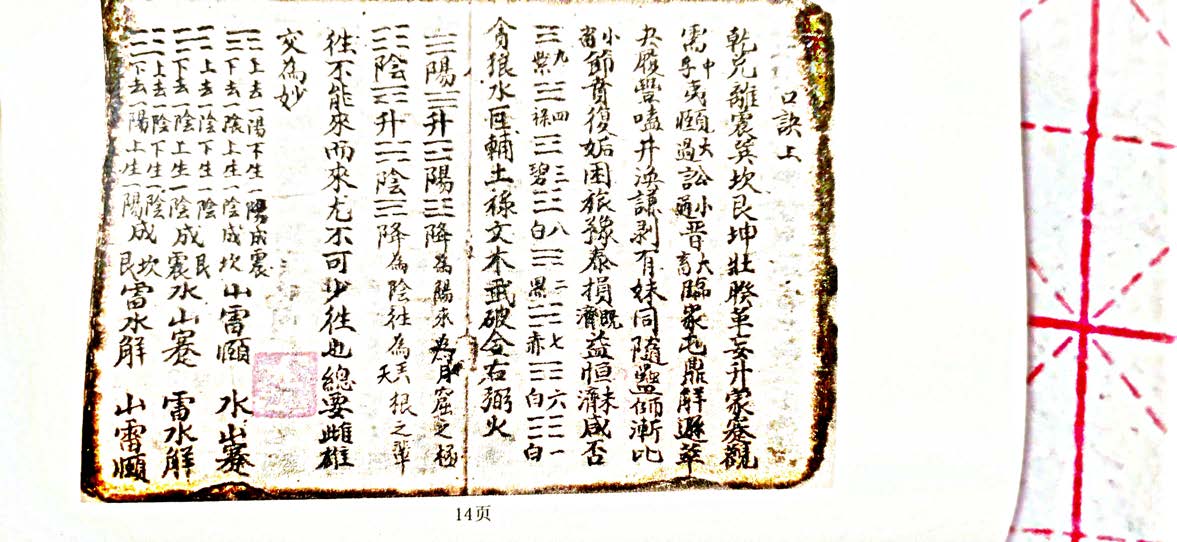 口訣上
乾兌離震巽坎艮坤壯睽革妄升蒙蹇觀
需中孚夷頤大過訟小過晋大畜臨家屯鼎解遯萃
夬履豐嗑井渙謙剥有妹同隨蠱師漸比
小畜節賁復姤困旅豫泰損既濟益恒未濟咸否
九紫四祿三碧八白二黑七赤六白一白
貪狼水巨輔土祿文木武破金右弼火
陽升陽降為陽來為月窟之極
陰升陰降為陰往為天根之
往不能來而來尤不可少往也總要雌雄
交為妙
上去一陽下生一陽成震
下去一陰上生一陰成坎山雷頤 水山蹇
上去一陰下生一陰成艮
下去一陰上生一陰成震水山蹇 雷水解
上去一陰下生一陰成坎
下去一陽上生一陽成艮雷水解 山雷頤
14页